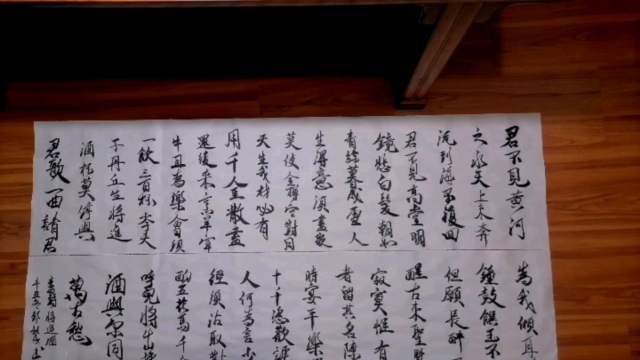 君不見黄河
之水天上来奔
流到海不復回
君不見高堂明
鏡悲白髮朝如
青絲暮成雪人
生得意須盡歡
莫使金樽空對月
天生我材必有
用千金散盡
還復来烹羊宰
牛且為樂會須
一飲三百杯岑夫
子丹丘生將進
酒杯莫停與
君歌一曲請君
為我傾耳
鐘鼓饌玉不
但願長醉
醒古来聖賢
寂寞惟有
者留其名陳
時宴平樂
十千恣歡謔
人何為言少
徑須沽取對
酌五花馬千
呼兒將出
酒與爾同
萬古愁